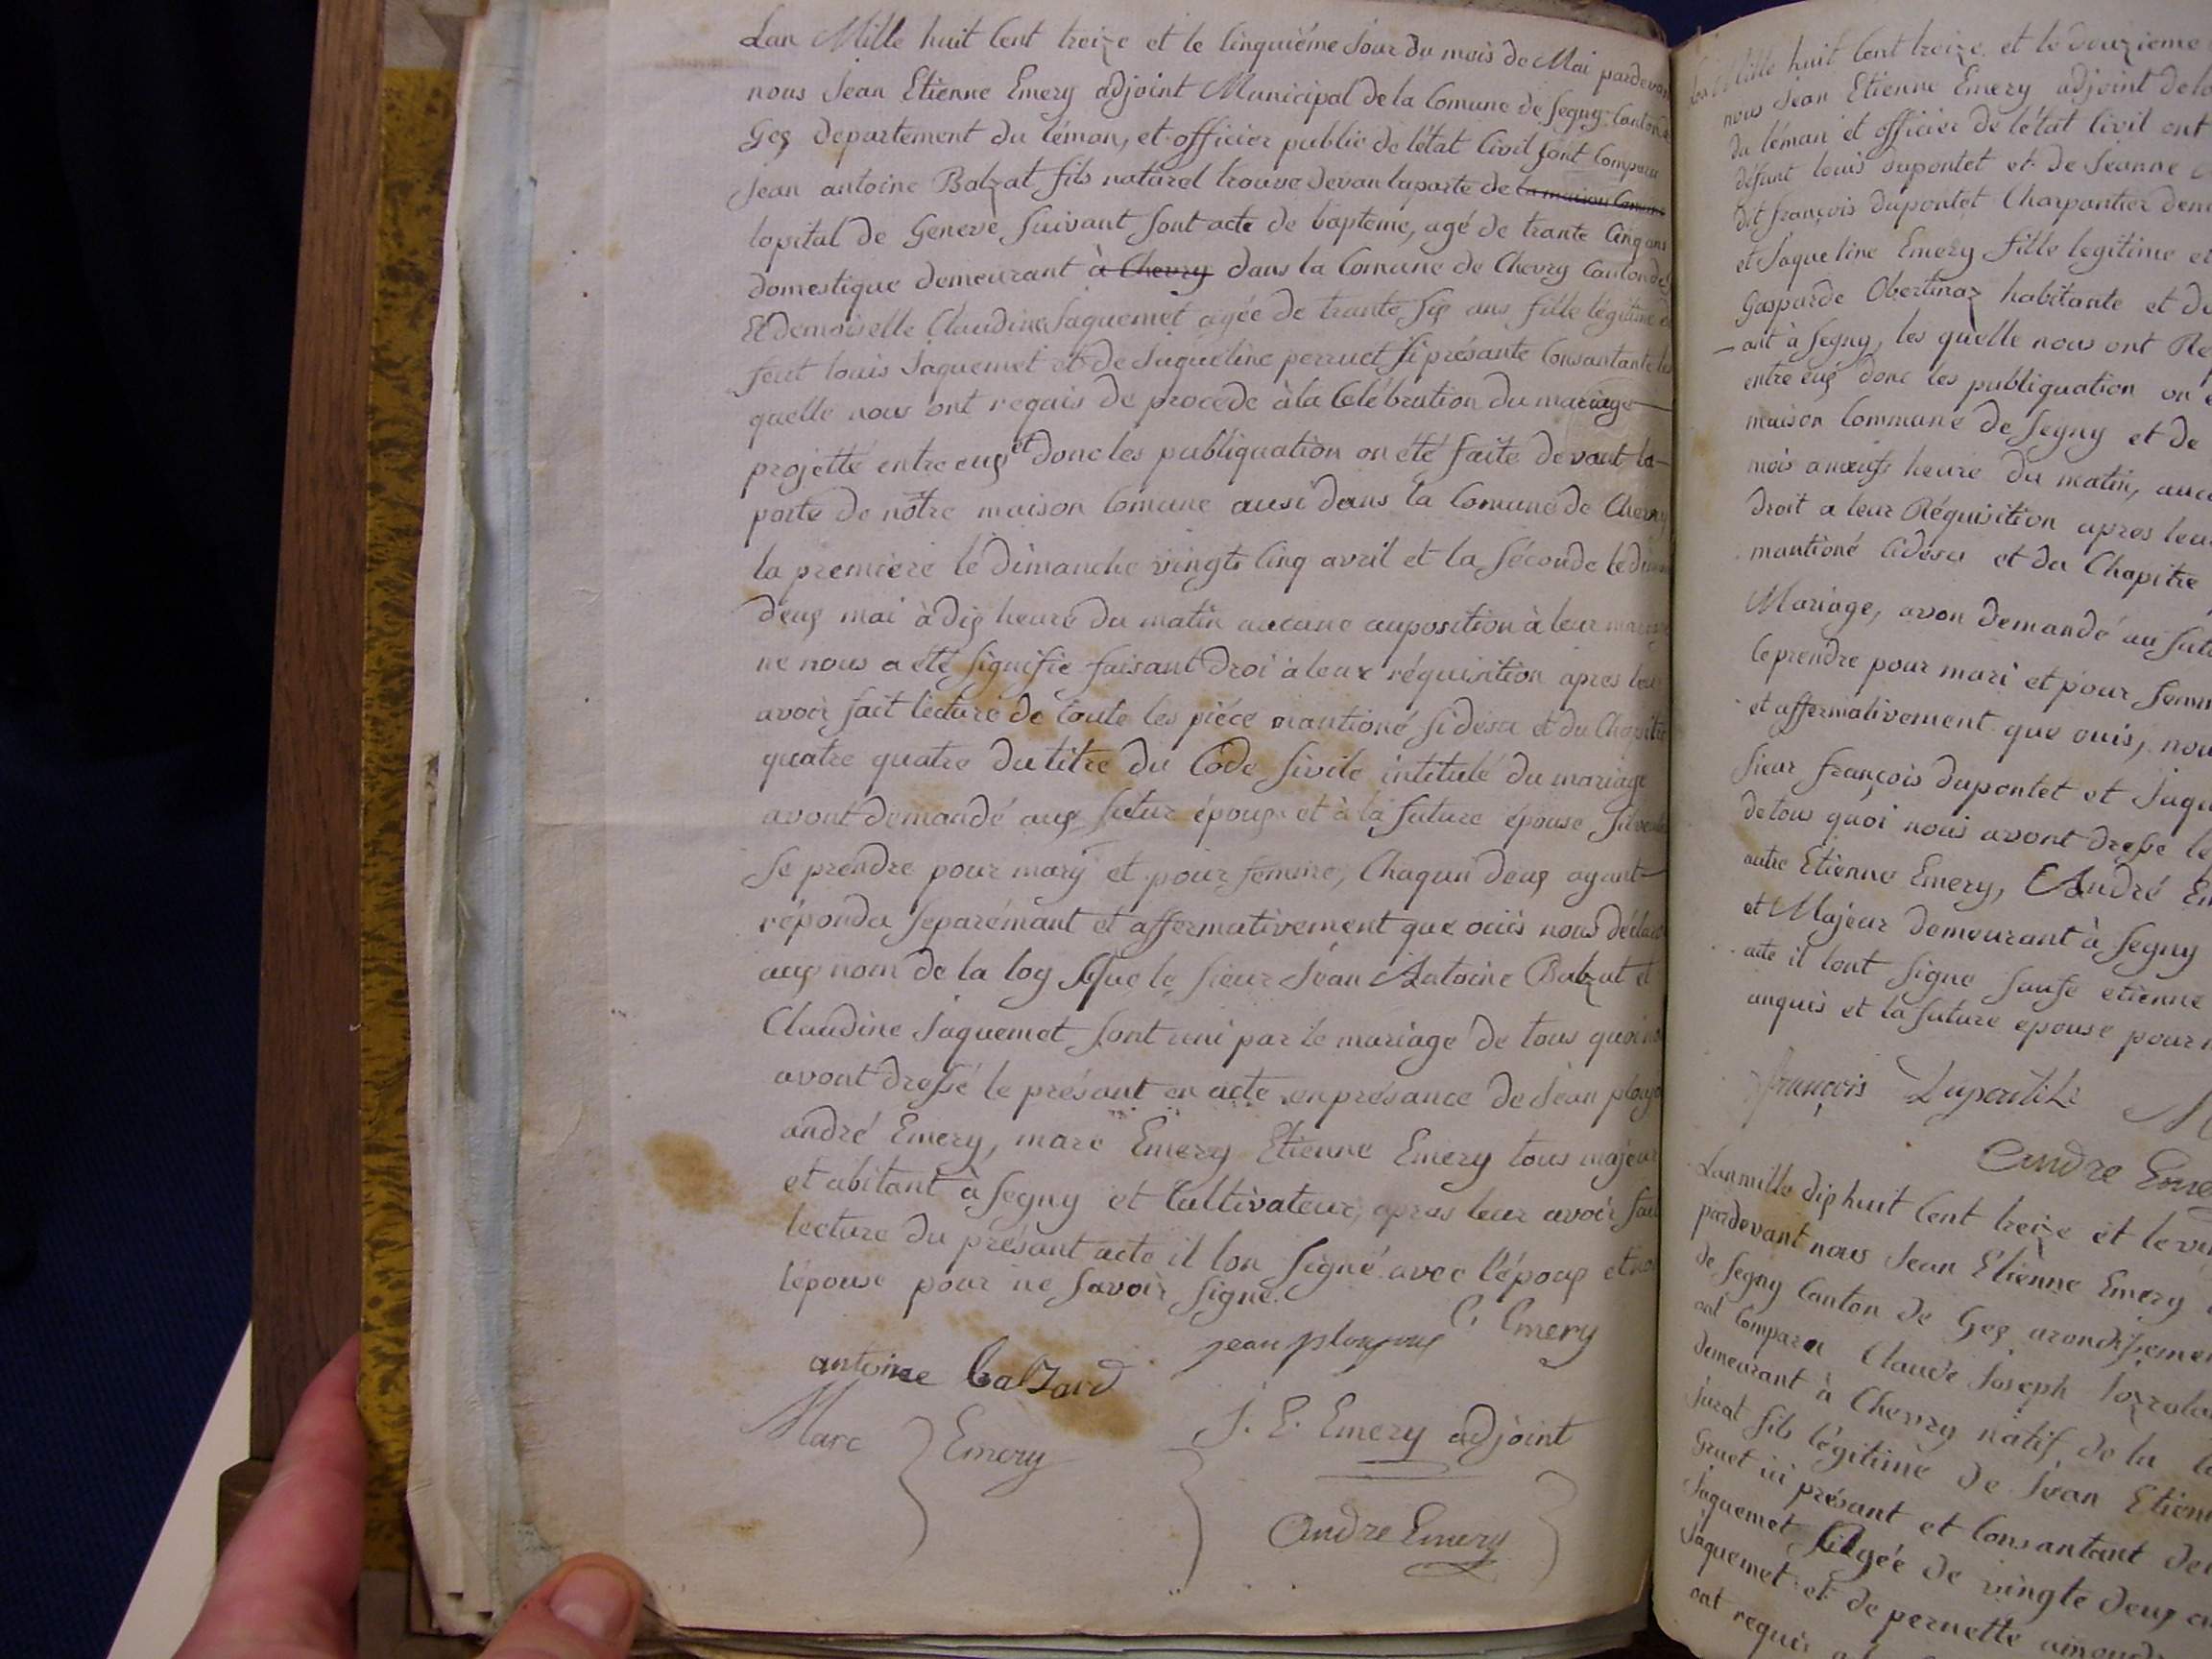 Lan Mille huit Cent treize et le Cinquième Jour du mois de Mai pardevan
nous Jean Etienne Emery adjoint Municipal de la Comune de Segny Canton
Gex departement du léman, et officier public de l'état Civil sont Comparu
Jean antoine Balzat fils naturel trouvé devan la porte de la maison Comune
lopital de Geneve Suivant sont acte de bapteme, agé de trante Cinq ans
domestique demeurant à Chevry dans la Comune de Chevry Canton de
Et demoiselle Claudine Jaquemet agée de trante Six ans fille légitime
feut louis Jaquemet et de Jaqueline perruet Si présante Consantante les
quelle nous ont requis de procédé à la Célébration du mariage
projetté entre eux et donc les publiquation on été faite devant la
porte de nôtre maison Comune ausi dans la Comune de Chevry
la premiere le dimanche vingt Cinq avril et la Séconde le
deux mai à dix heure du matin aucune auposition à leur mariage
ne nous a été Signifié faisant droi à leur réquisition apres leur
avoir fait lecture de toute les piéce mantioné Si désu et du Chapitre
quatre quatre du titre du Code Sivile intitulé du mariage
avont demandé aux futur époux et à la future épouse
Se prendre pour mary et pour femme, Chaqun deux ayant
répondu Separémant et affermativement que ouis nous
aux nom de la loy que le Sieur Jean Antoine Balzat et
Claudine Jaquemet Sont uni par le mariage de tous quoi
avont dressé le présant en acte en présance de Jean
andré Emery, marc Emery Etienne Emery tous majeur
et abitant à Segny et Cultivateur, apres leur avoir fait
lecture du présant acte il lon Signé avec l'époux et
l'épouse pour ne Savoir Signé.
E. Emery
antoine balzard
Marc Emery
J. E. Emery adjoint
Andre Emery
Mille huit Cent treize et le douzieme
nous Jean Etienne Emery adjoint de la
du léman et officier de l'état Civil ont
défunt louis dupontet et de Jeanne
dit françois dupontet Charpantier
et Jaqueline Emery fille legitime et
Gasparde Obertinaz habitante et
ant à Segny, les quelle nous ont
entre eux donc les publiquation on
maison Commune de Segny et de
mois a neufs heure du matin,
droit a leur Réquisition apres leur
mantioné Cidésu et du Chapitre
Mariage, avon demandé au
le prendre pour mari et pour
et affermativement que ouis, nou
Sieur françois dupontet et
de tous quoi nous avont dresse le
autre Etienne Emery, André
et Majeur demeurant à Segny
acte il lont Signe Saufe etienne
anquis et la future epouse pour
françois
Andre
Lan mille dix huit Cent treize et le
pardevant nous Jean Etienne Emery
de Segny Canton de Gex
ont Comparu Claude Joseph
demeurant à Chevry natif de la
Jurat fils légitime de Jean
Gruet ici présant et Consantant
Jaquemet Agée de vingte deux
Jaquemet et de pernette
ont requi